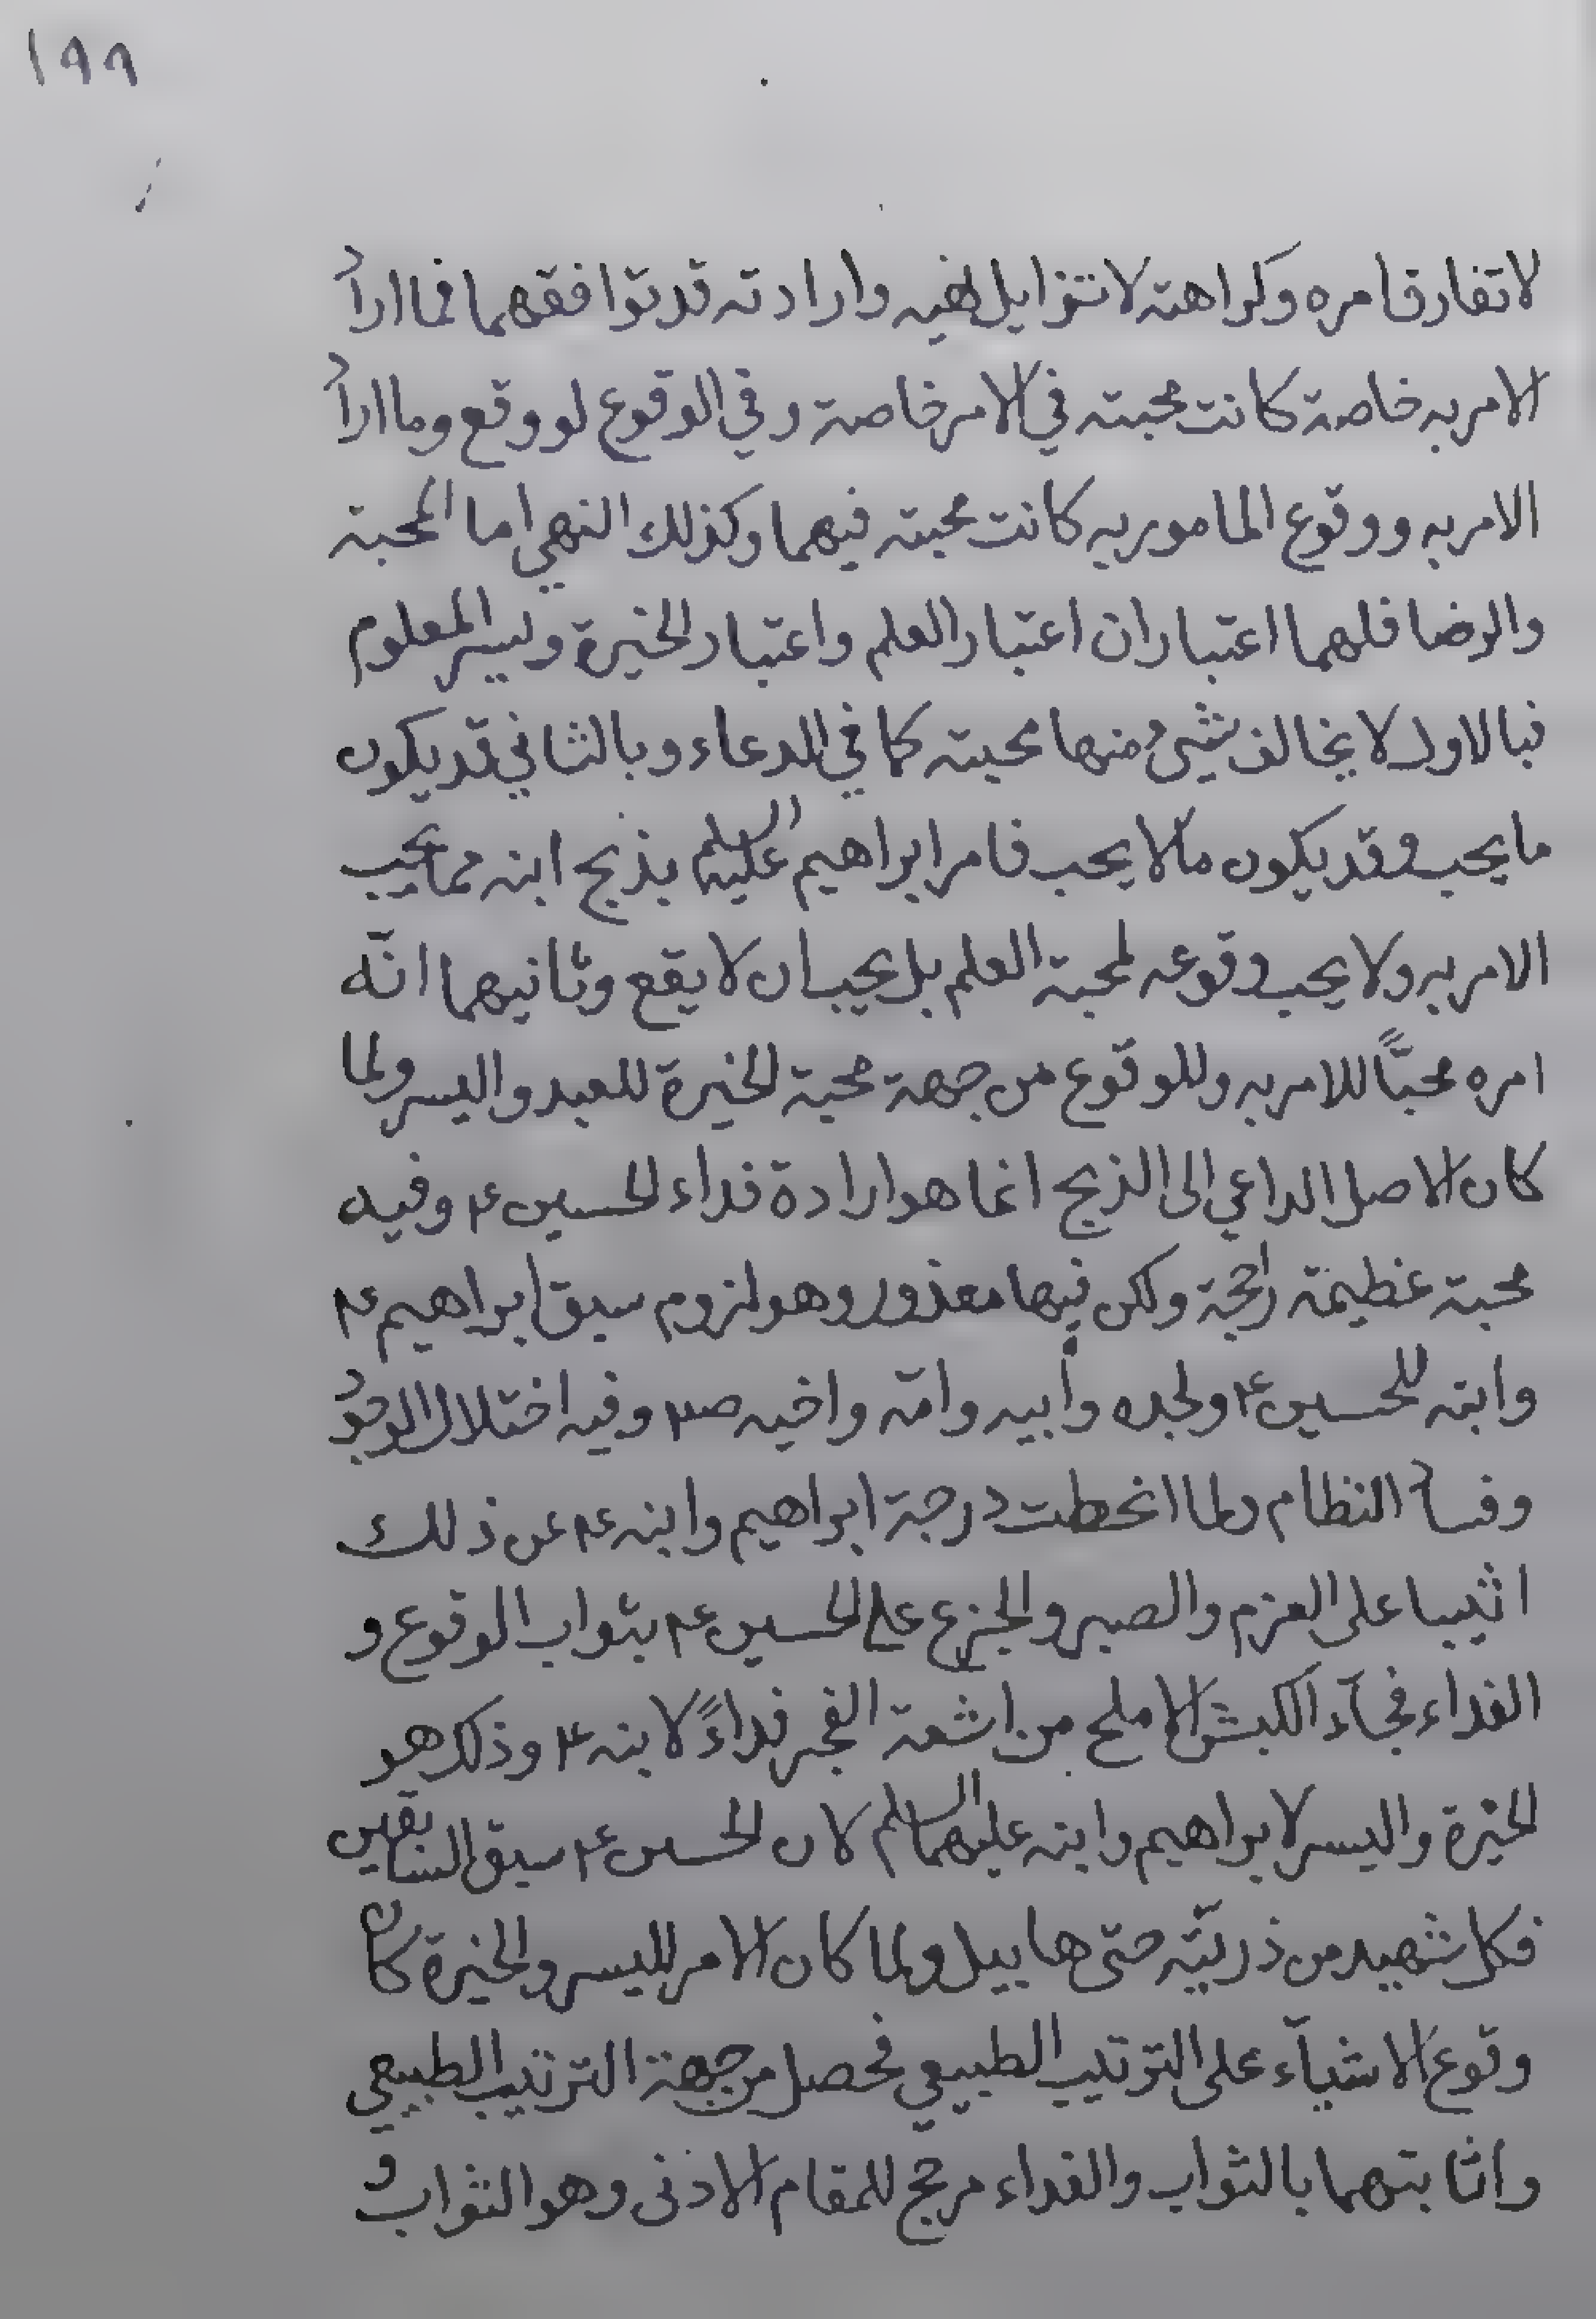 ١٩٩
لا تفارق امره وكراهته لا تتزايل نهيه وارادته قد توافقهما فما اراد
الامر به خاصة كانت محبته في الامر خاصة وفي الوقوع لو وقع وما اراد
الامر به ووقوع المامور به كانت محبته فيهما وكذلك النهي اما المحبة
والرضا فلهما اعتباران اعتبار العلم واعتبار الخيرة وليسر المعلوم
فبالاول لا يخالف شيء منها محبته كما في الدعاء وبالثاني قد يكون
ما يحب وقد يكون ما لا يحب فامر ابراهيم عليه السلم بذبح ابنه مما يحب
الامر به ولا يحب وقوعه لمحبة العلم بل يحب ان لا يقع وثانيهما انّه
امره محبًّا للامر به وللوقوع من جهة محبة الخيرة للعبد واليسر ولما
كان الاصل الداعي الى الذبح انما هو ارادة فداء الحسين ع٢ وفيه
محبة عظيمة راجحة ولكن فيها معذور وهو لزوم سبق ابراهيم ع٢
وابنه للحسين ع٢ ولجده وأبيه وامّه واخيه ص٢ وفيه اختلال الوجود
وفساد النظام ولما انحطت درجة ابراهيم وابنه ع٢ عن ذلك
اثيبا على العزم والصبر والجزع على الحسين ع٢ بثواب الوقوع و
الفداء فجآء الكبش الاملح من اشعة الفجر فداءً لابنه ع٢ وذلك هو
الخيرة واليسر لابراهيم وابنه عليهما السلم لان الحسين ع٢ سبق السابقين
فكل شهيد من ذريّته حتى هابيل ولما كان الامر لليسر والخيرة كان
وقوع الاشيآء على الترتيب الطبيعي فحصل من جهة الترتيب الطبيعي
واثابتهما بالثواب والفداء مرجح للمقام الادنى وهو الثواب و